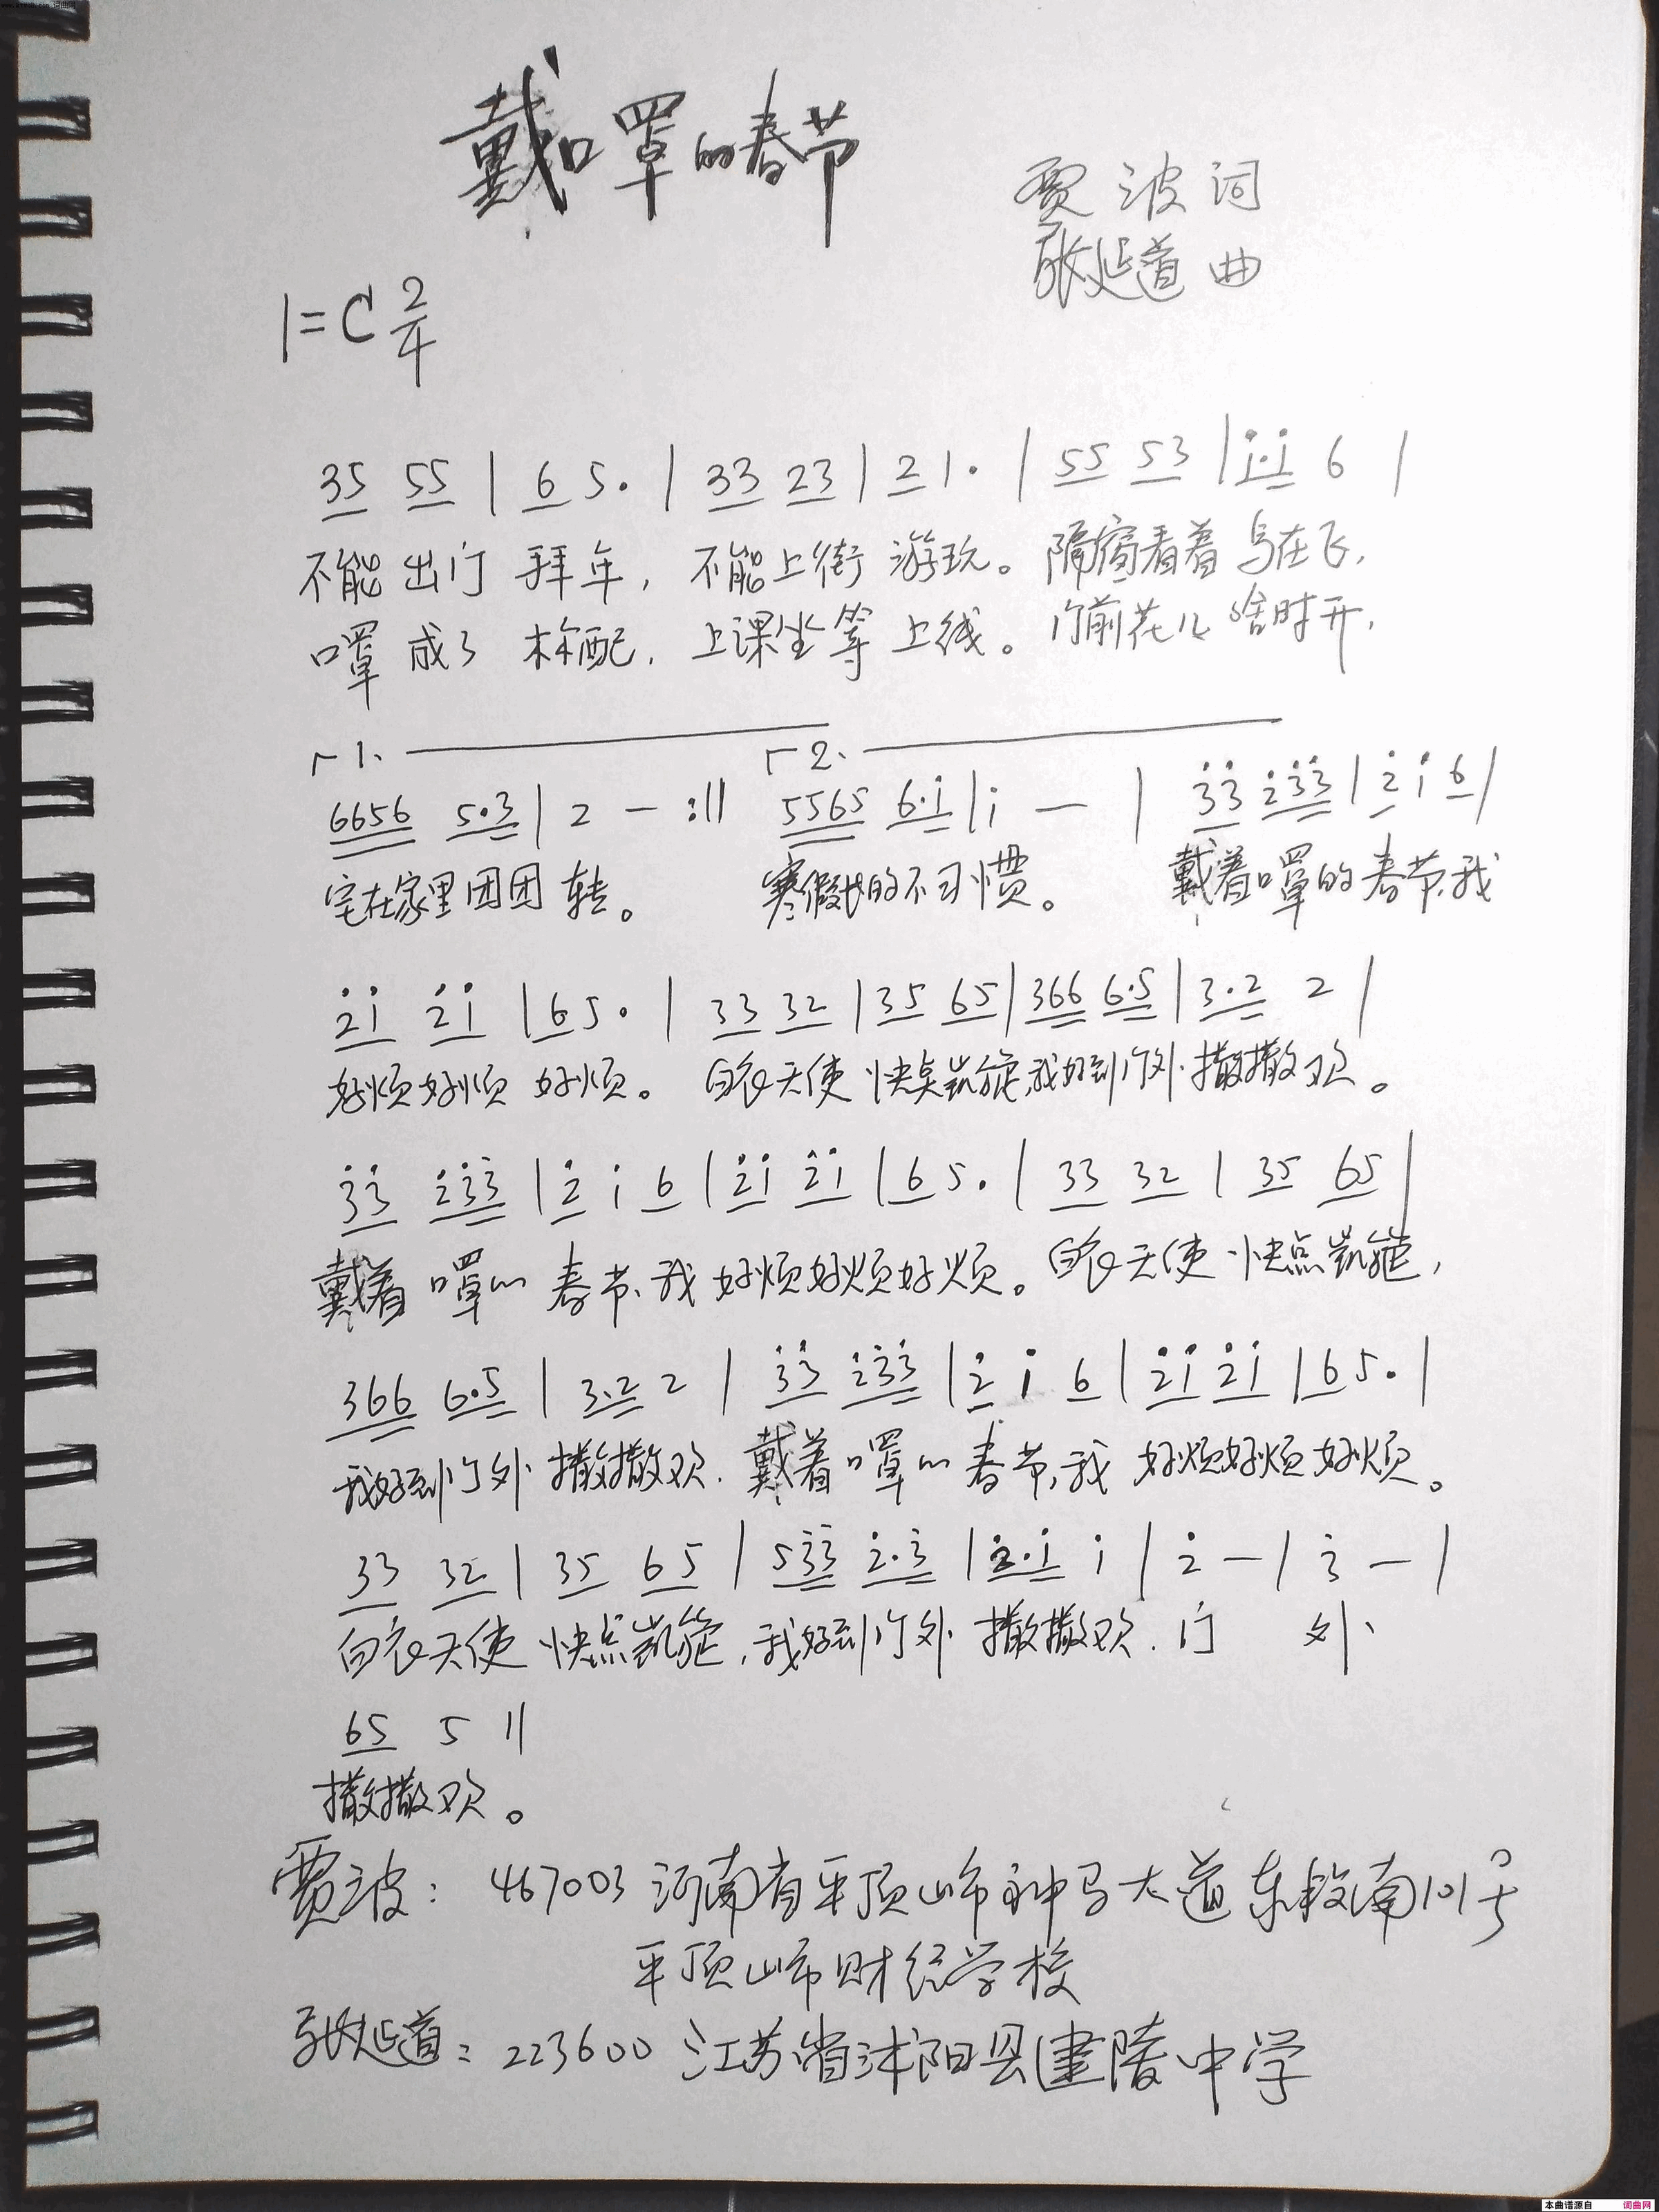 戴口罩的春节
贾波词
张延道曲
1=C 2/4
35 55 | 6 5. | 33 23 | 2 1. | 55 53 | i.i 6 |
不能出门拜年，不能上街游玩。隔窗看着鸟在飞，
口罩成了标配，上课坐等上线。门前花儿啥时开，
1. 2.
6656 5.3 | 2 - :|| 5565 6.i | i - | 33 i33 | 2 i 6 |
宅在家里团团转。寒假长的不习惯。戴着口罩的春节，我
2i 2i | 6 5. | 33 32 | 35 65 | 366 6.5 | 3.2 2 |
好烦好烦好烦。白衣天使快点凯旋，我好到门外撒撒欢。
33 233 | 2 i 6 | 2i 2i | 6 5. | 33 32 | 35 65 |
戴着口罩的春节，我好烦好烦好烦。白衣天使快点凯旋，
366 6.5 | 3.2 2 | 33 233 | 2 i 6 | 2i 2i | 6 5. |
我好到门外撒撒欢，戴着口罩的春节，我好烦好烦好烦。
33 32 | 35 65 | 533 2.3 | 2.i i | 2 - | 3 - |
白衣天使快点凯旋，我好到门外撒撒欢，门外
65 5 ||
撒撒欢。
贾波：467003 河南省平顶山市神马大道东段南101号
平顶山市财经学校
张延道：223600 江苏省沭阳县建陵中学
本曲谱源自 词曲网